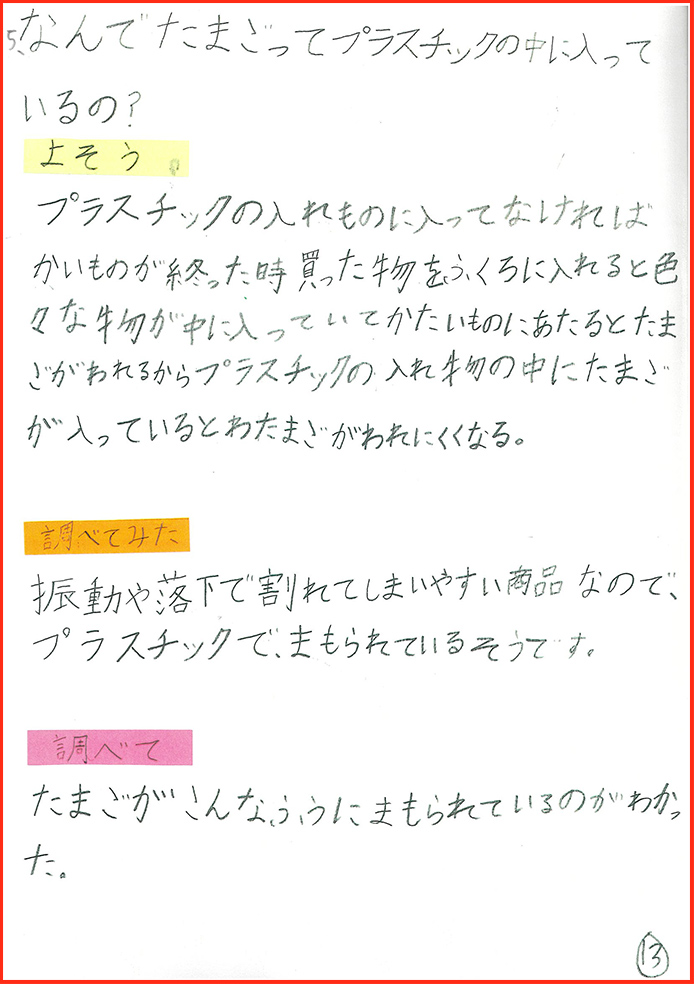 5、なんでたまごってプラスチックの中に入って
いるの?
よそう。
プラスチックの入れものに入ってなければ
かいものが終った時買った物をふくろに入れると色
々な物が中に入っていてかたいものにあたるとたま
ごがわれるからプラスチックの入れ物の中にたまご
が入っているとわたまごがわれにくくなる。
調べてみた
振動や落下で割れてしまいやすい商品なので、
プラスチックで、まもられているそうです。
調べて
たまごがこんなふうにまもられているのがわかっ
た。
13